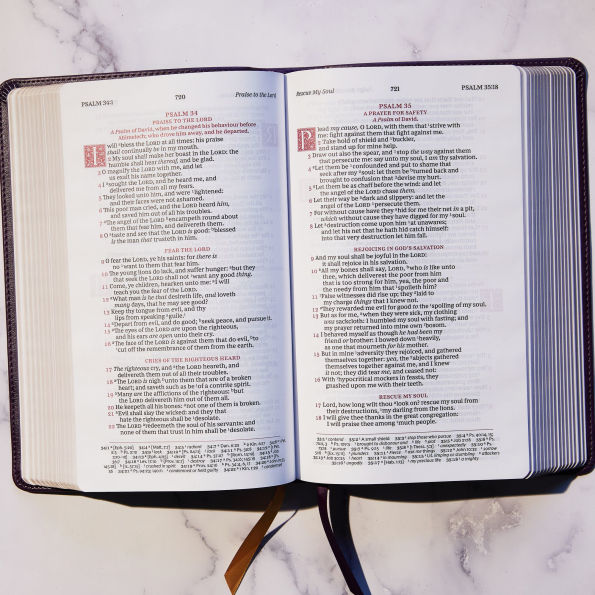 PSALM 34:1 720 Praise to the Lord
PSALM 34
PRAISE TO THE LORD
A Psalm of David, when he changed his behaviour before
Abimelech; who drove him away, and he departed.
I will bless the LORD at all times: his praise
shall continually be in my mouth.
2 My soul shall make her boast in the LORD: the
humble shall hear thereof, and be glad.
3 O magnify the LORD with me, and let
us exalt his name together.
4 I sought the LORD, and he heard me, and
delivered me from all my fears.
5 They looked unto him, and were lightened:
and their faces were not ashamed.
6 This poor man cried, and the LORD heard him,
and saved him out of all his troubles.
7 The angel of the LORD encampeth round about
them that fear him, and delivereth them.
8 O taste and see that the LORD is good: blessed
is the man that trusteth in him.
FEAR THE LORD
9 O fear the LORD, ye his saints: for there is
no want to them that fear him.
10 The young lions do lack, and suffer hunger: but they
that seek the LORD shall not want any good thing.
11 Come, ye children, hearken unto me: I will
teach you the fear of the LORD.
12 What man is he that desireth life, and loveth
many days, that he may see good?
13 Keep thy tongue from evil, and thy
lips from speaking guile.
14 Depart from evil, and do good; seek peace, and pursue it.
15 The eyes of the LORD are upon the righteous,
and his ears are open unto their cry.
16 The face of the LORD is against them that do evil, to
cut off the remembrance of them from the earth.
CRIES OF THE RIGHTEOUS HEARD
17 The righteous cry, and the LORD heareth, and
delivereth them out of all their troubles.
18 The LORD is nigh unto them that are of a broken
heart; and saveth such as be of a contrite spirit.
19 Many are the afflictions of the righteous: but
the LORD delivereth him out of them all.
20 He keepeth all his bones: not one of them is broken.
21 Evil shall slay the wicked: and they that
hate the righteous shall be desolate.
22 The LORD redeemeth the soul of his servants: and
none of them that trust in him shall be desolate.
Rescue My Soul 721 PSALM 35:18
PSALM 35
A PRAYER FOR SAFETY
A Psalm of David.
Plead my cause, O LORD, with them that strive with
me: fight against them that fight against me.
2 Take hold of shield and buckler,
and stand up for mine help.
3 Draw out also the spear, and stop the way against them
that persecute me: say unto my soul, I am thy salvation.
4 Let them be confounded and put to shame that
seek after my soul: let them be turned back and
brought to confusion that devise my hurt.
5 Let them be as chaff before the wind: and let
the angel of the LORD chase them.
6 Let their way be dark and slippery: and let the
angel of the LORD persecute them.
7 For without cause have they hid for me their net in a pit,
which without cause they have digged for my soul.
8 Let destruction come upon him at unawares;
and let his net that he hath hid catch himself:
into that very destruction let him fall.
REJOICING IN GOD'S SALVATION
9 And my soul shall be joyful in the LORD:
it shall rejoice in his salvation.
10 All my bones shall say, LORD, who is like unto
thee, which deliverest the poor from him
that is too strong for him, yea, the poor and
the needy from him that spoileth him?
11 False witnesses did rise up; they laid to
my charge things that I knew not.
12 They rewarded me evil for good to the spoiling of my soul.
13 But as for me, when they were sick, my clothing
was sackcloth: I humbled my soul with fasting; and
my prayer returned into mine own bosom.
14 I behaved myself as though he had been my
friend or brother: I bowed down heavily,
as one that mourneth for his mother.
15 But in mine adversity they rejoiced, and gathered
themselves together: yea, the abjects gathered
themselves together against me, and I knew
it not; they did tear me, and ceased not:
16 With hypocritical mockers in feasts, they
gnashed upon me with their teeth.
RESCUE MY SOUL
17 Lord, how long wilt thou look on? rescue my soul from
their destructions, my darling from the lions.
18 I will give thee thanks in the great congregation:
I will praise thee among much people.